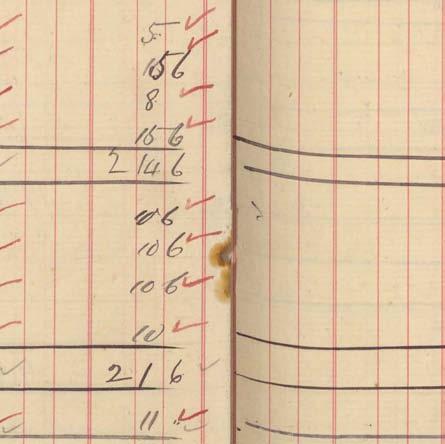 5
15 6
8
15 6
2 14 6
10 6
10 6
10 6
10
2 1 6
11